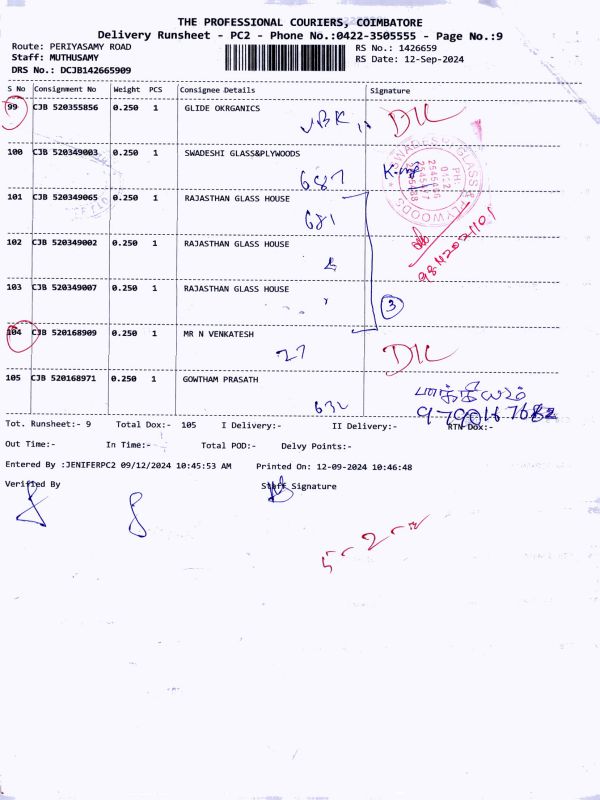 THE PROFESSIONAL COURIERS, COIMBATORE
Delivery Runsheet - PC2 - Phone No.:0422-3505555 - Page No.:9
Route: PERIYASAMY ROAD
RS No.: 1426659
Staff: MUTHUSAMY
RS Date: 12-Sep-2024
DRS No.: DCJB142665909
S No Consignment No Weight PCS Consignee Details Signature
99 CJB 520355856 0.250 1 GLIDE OKRGANICS
VBK
100 CJB 520349003 0.250 1 SWADESHI GLASS&PLYWOODS
687
SWADESHI GLASS & PLYWOODS
101 CJB 520349065 0.250 1 RAJASTHAN GLASS HOUSE
681
102 CJB 520349002 0.250 1 RAJASTHAN GLASS HOUSE
103 CJB 520349007 0.250 1 RAJASTHAN GLASS HOUSE
3
104 CJB 520168909 0.250 1 MR N VENKATESH
27
105 CJB 520168971 0.250 1 GOWTHAM PRASATH
632
பாக்கியம்
Tot. Runsheet:- 9 Total Dox:- 105 I Delivery:- II Delivery:- RTN Dox:-
Out Time:- In Time:- Total POD:- Delvy Points:-
Entered By :JENIFERPC2 09/12/2024 10:45:53 AM Printed On: 12-09-2024 10:46:48
Verified By Staff Signature